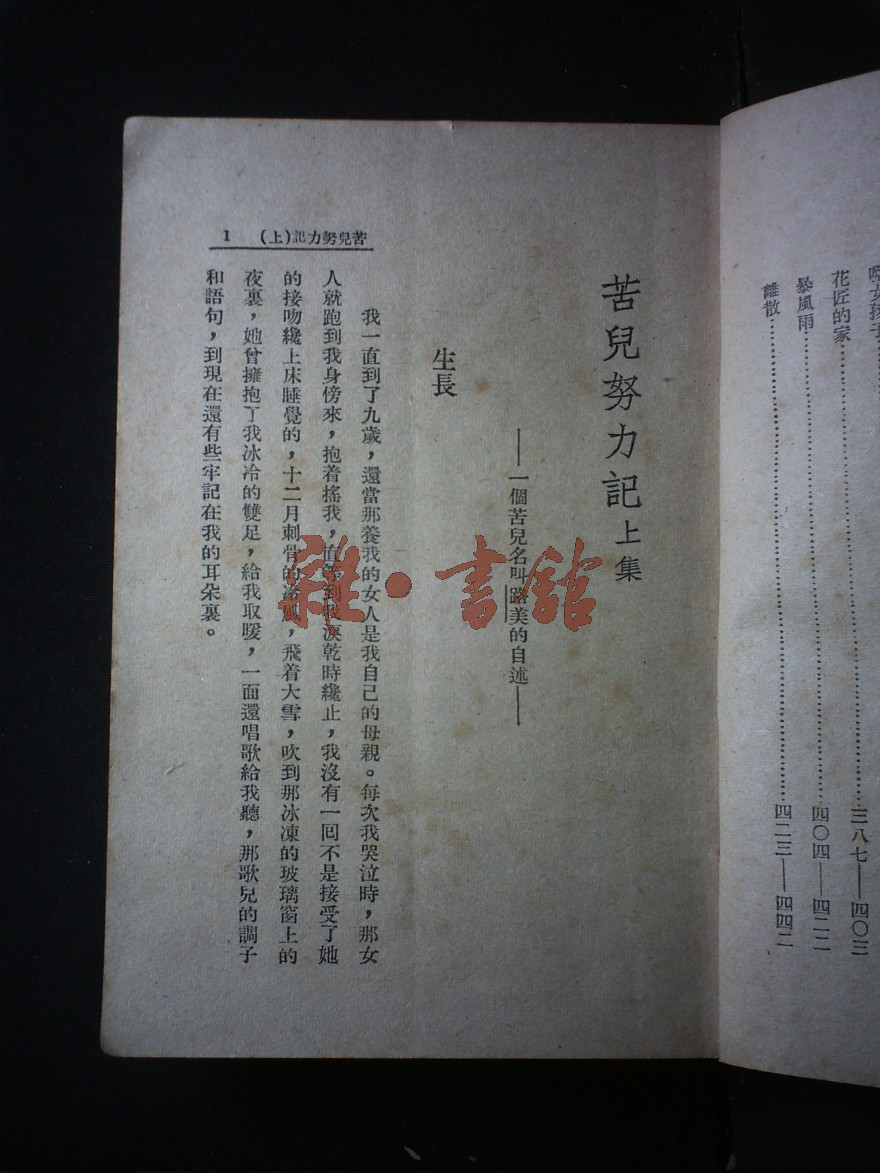 花匠的家……三八七——四〇三
暴風雨……四〇四——四二二
離散……四二三——四四二
苦兒努力記 上集
——一個苦兒名叫路美的自述——
生長
苦兒努力記(上) 1
我一直到了九歲，還當那養我的女人是我自己的母親。每次我哭泣時，那女
人就跑到我身傍來，抱着搖我，直等到我淚乾時纔止，我沒有一回不是接受了她
的接吻纔上床睡覺的，十二月刺骨的冷風，飛着大雪，吹到那冰凍的玻璃窗上的
夜裏，她曾擁抱了我冰冷的雙足，給我取暖，一面還唱歌給我聽，那歌兒的調子
和語句，到現在還有些牢記在我的耳朵裏。
雜·書館